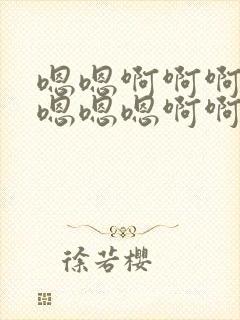 嗯嗯啊啊啊
嗯嗯嗯啊啊
徐若樱